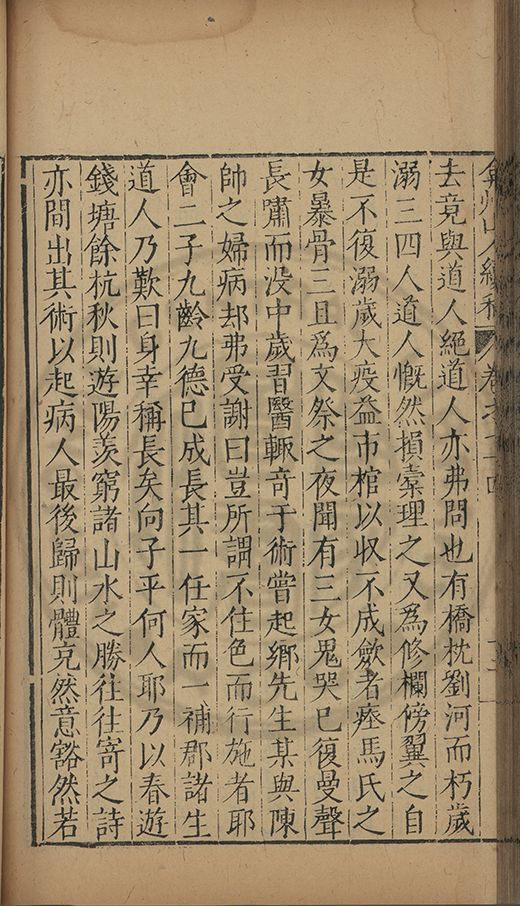 弇州山人續稿 卷之十四
去竟與道人絕道人亦弗問也有橋枕劉河而朽歲
溺三四人道人慨然損槖理之又爲修欄傍翼之自
是不復溺歲大疫益市棺以収不成斂者瘞馬氏之
女暴骨三且爲文祭之夜聞有三女鬼哭已復曼聲
長嘯而没中歲習醫輙奇于術嘗起鄉先生某與陳
帥之婦病却弗受謝曰豈所謂不住色而行施者耶
會二子九齡九德已成長其一任家而一補郡諸生
道人乃歎曰身幸稱長矣向子平何人耶乃以春遊
錢塘餘杭秋則遊陽羨窮諸山水之勝往往寄之詩
亦間出其術以起病人最後歸則體充然意豁然若